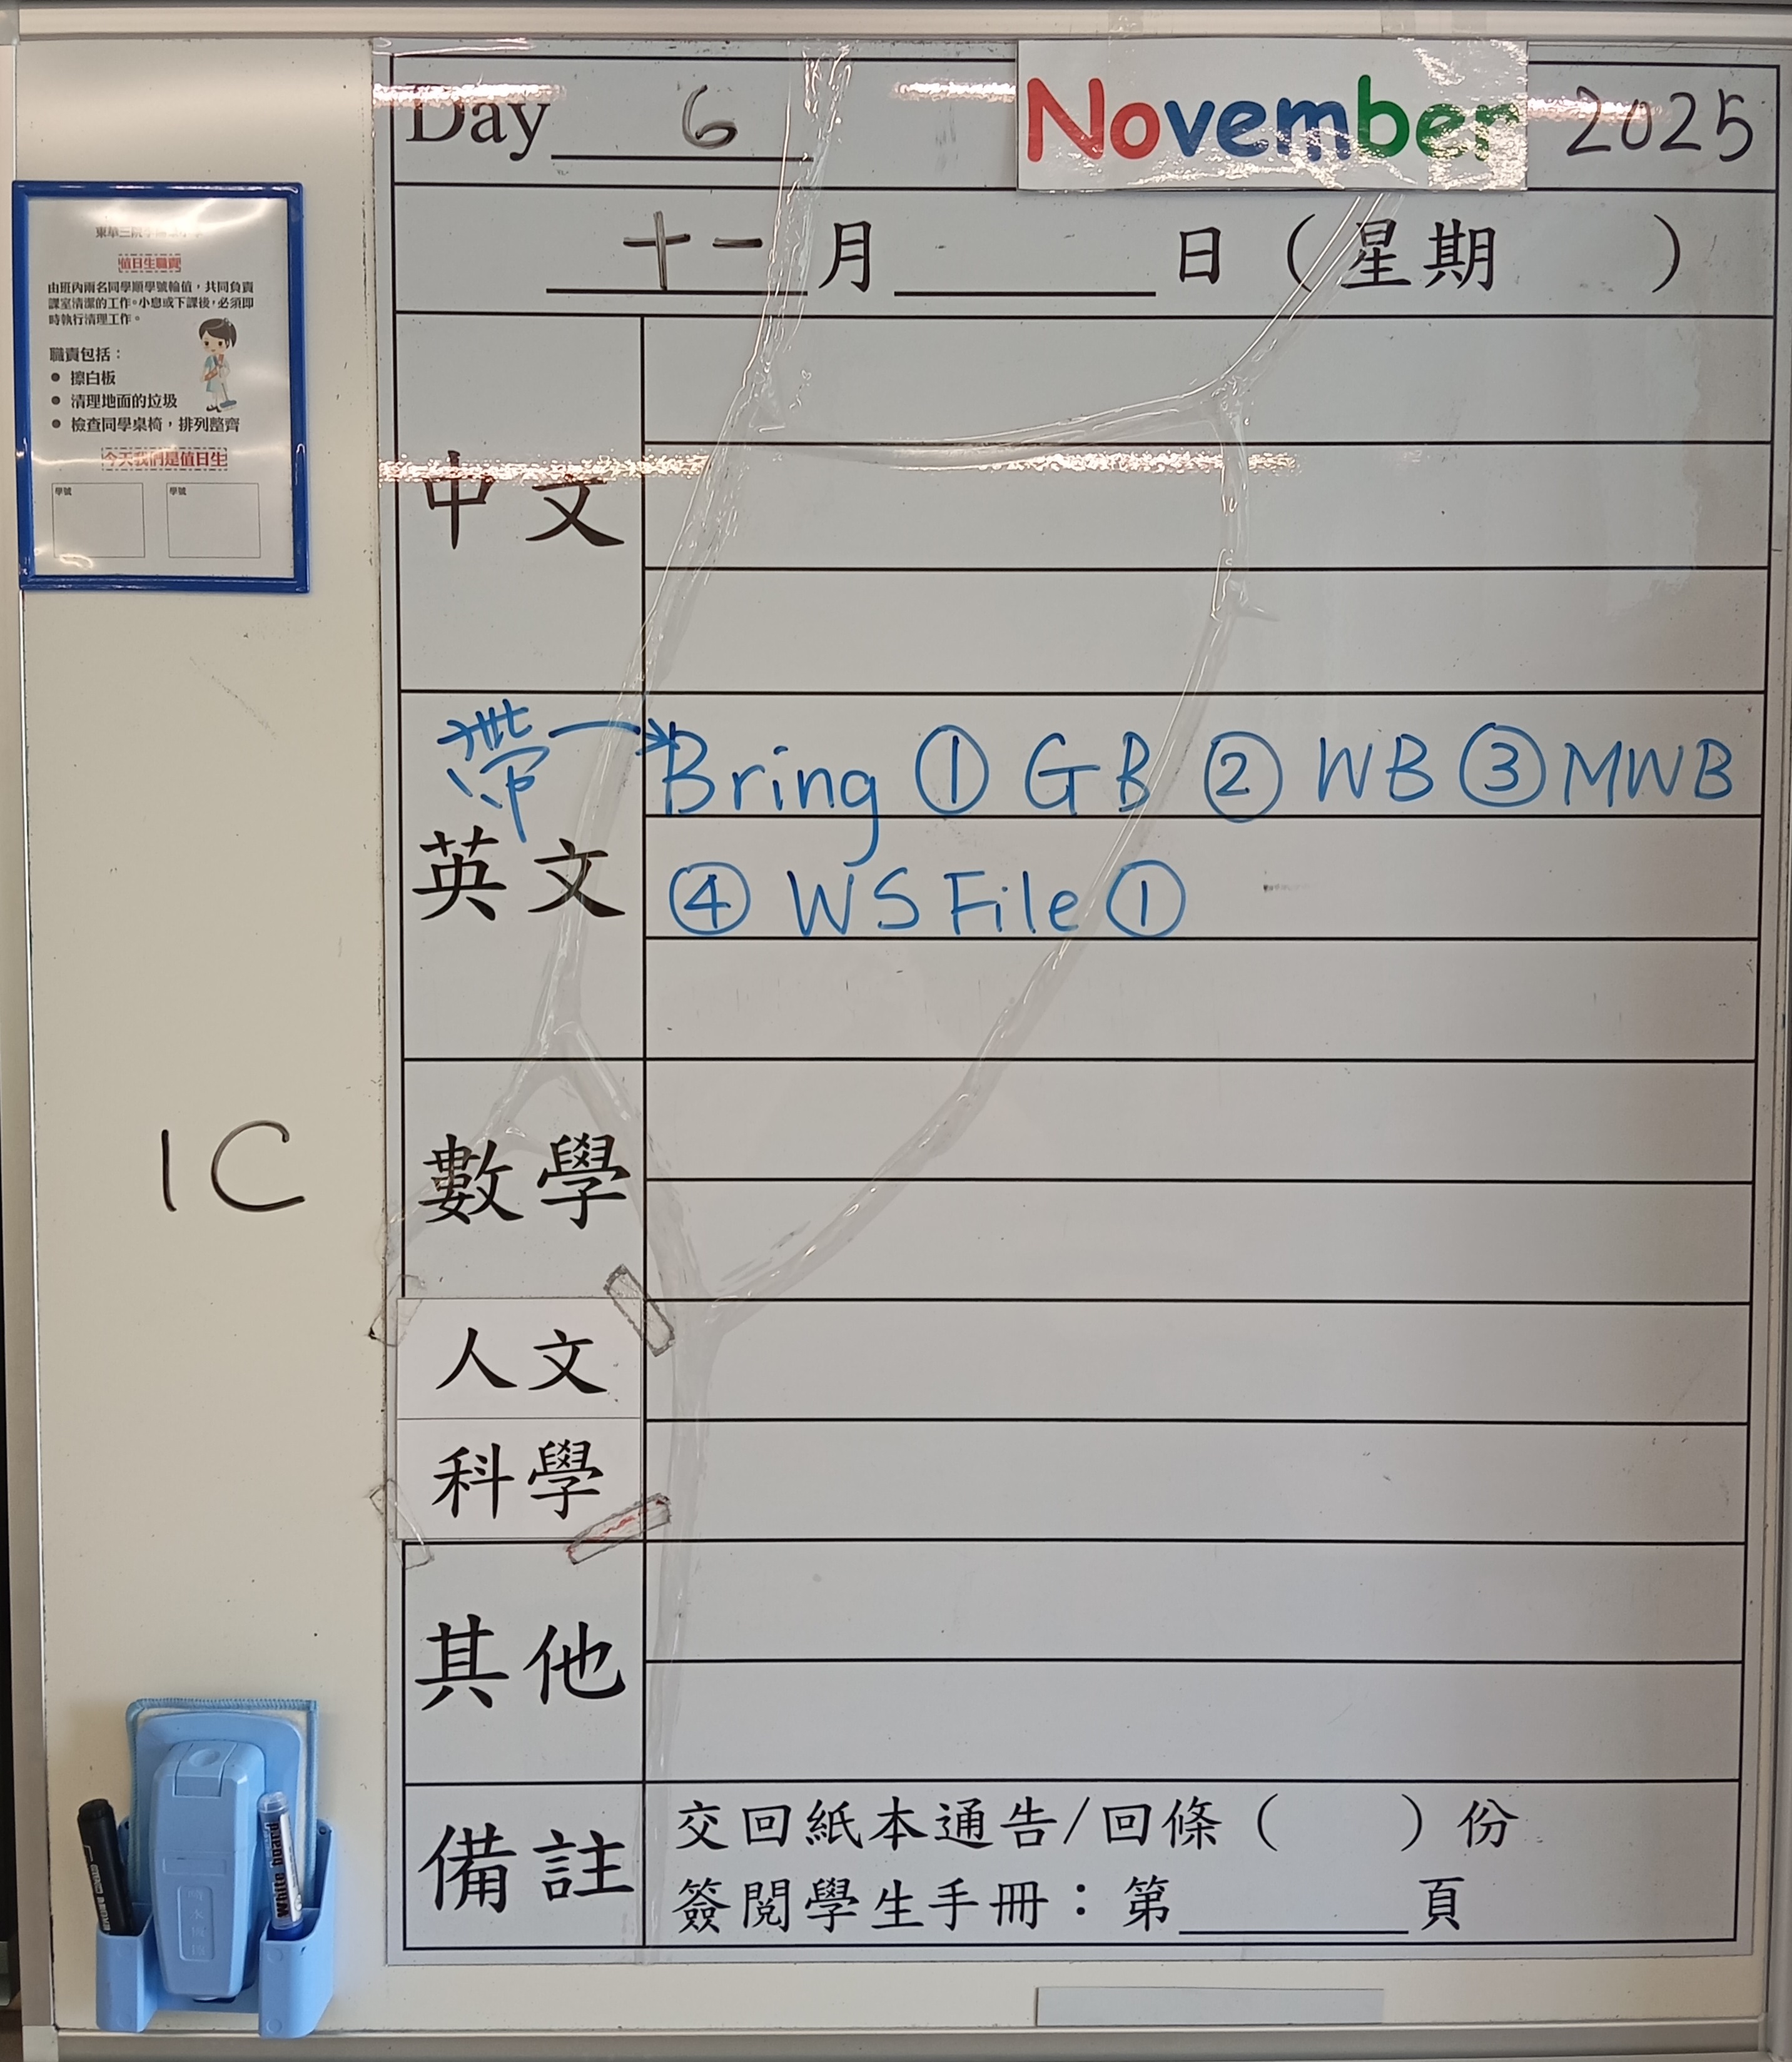 Day 6 November 2025
十一月 日（星期 ）
值日生職責
由班內兩名同學順學號輪值，共同負責
課室清潔的工作。小息或下課後，必須即
時執行清理工作。
職責包括：
• 擦白板
• 清理地面的垃圾
• 檢查同學桌椅，排列整齊
今天我們是值日生
學號 學號
中文
帶→Bring ① GB ② WB ③ MWB
英文
④ WS File ①
1C
數學
人文
科學
其他
備註
交回紙本通告/回條（ ）份
簽閱學生手冊：第 頁
White board